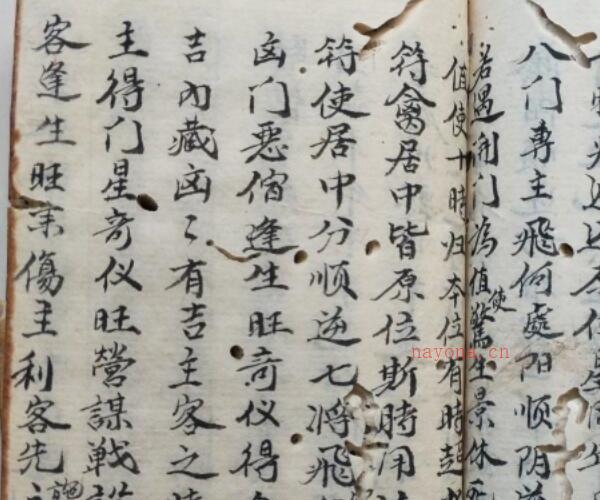 八门专主飛何處阳顺阴
若遇開门為值使驚生景休死
值使十時归本位有時超
符禽居中皆原位斯時用
符使居中分顺逆七将飛
凶门恶宿逢生旺奇仪得
吉内藏凶凶有吉主客之
主得门星奇仪旺营謀戦
客逢生旺来傷主利客先
nayona.cn